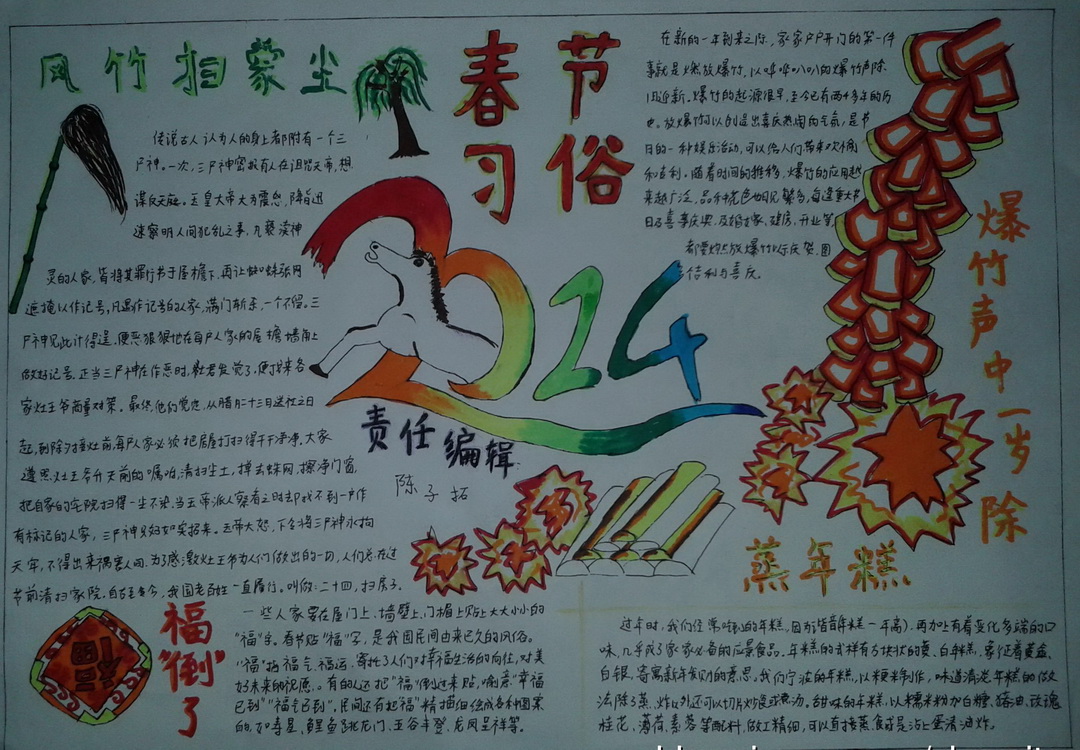 风竹扫蒙尘
春节
习俗
传说古人认为人的身上都附有一个三
尸神。一次，三尸神密报有人在诅咒天帝，想
谋反天庭。玉皇大帝大为震怒，降旨迅
速察明人间犯乱之事，凡亵渎神
灵的人家，皆将其罪行书于屋檐下，再让蜘蛛张网
遮掩以作记号，凡遇作记号的人家，满门斩杀，一个不留。三
尸神见此计得逞，便恶狠狠地在每户人家的屋檐墙角上
做好记号。正当三尸神在作恶时，灶君发觉了，便找来各
家灶王爷商量对策。最终，他们觉定，从腊月二十三日送灶之日
起，到除夕接灶前，每户人家必须把房屋打扫得干干净净。大家
遵照灶王爷升天前的嘱咐，清扫尘土，掸去蛛网，擦净门窗，
把自家的宅院扫得一尘不染。当王帝派人察看之时却找不到一户作
有标记的人家，三尸神只好如实招来。玉帝大怒，下令将三尸神永拘
天牢，不得出来祸害人间。为感激灶王爷为人们做出的一切，人们总在过
节前清扫家院。自古至今，我国老百姓一直履行。叫做：二十四，扫房子。
在新的一年到来之际，家家户户开门的第一件
事就是燃放爆竹，以哔哔叭叭的爆竹声除
旧迎新。爆竹的起源很早，至今已有两千多年的历
史。放爆竹可以创造出喜庆热闹的气氛，是节
日的一种娱乐活动，可以给人们带来欢愉
和吉利。随着时间的推移，爆竹的应用越
来越广泛，品种花色也日见繁多，每逢重大节
日及喜事庆典，及婚嫁、建房、开业等
都要燃放爆竹以示庆贺，图
吉利与喜庆。
2014
爆竹声中一岁除
责任编辑
陈子拓
蒸年糕
福
福"倒"了
一些人家要在屋门上、墙壁上、门楣上贴上大大小小的
"福"字。春节贴"福"字，是我国民间由来已久的风俗。
"福"指福气、福运，寄托了人们对幸福生活的向往，对美
好未来的祝愿。有的人还把"福"倒过来贴，喻意"幸福
已到""福气已到"。民间还有把"福"精描细绘成各种图案
的，有寿星、鲤鱼跳龙门、五谷丰登、龙凤呈祥等。
过年时，我们经常吃到的年糕。因为谐音年糕一年高)，再加上有着变化多端的口
味，几乎成了家家必备的应景食品。年糕的式样有方块状的黄、白年糕，象征着黄金、
白银，寄寓新年发财的意思。我们宁波的年糕，以粳米制作，味道清淡。年糕的做
法除了蒸、炸以外还可以切片炒食或煮汤。甜味的年糕，以糯米粉加白糖、猪油、玫瑰
桂花、薄荷、素蓉等配料，做工精细，可以直接蒸食或是沾上蛋清油炸。